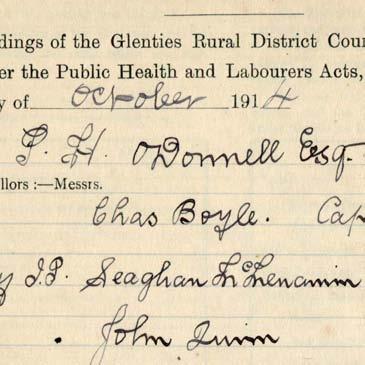 dings of the Glenties Rural District Coun
er the Public Health and Labourers Acts,
y of October 1914
P. H. O'Donnell Esq.
llors :—Messrs.
Chas Boyle. Cap
y J.P. Seaghan McMenamin
John Quinn